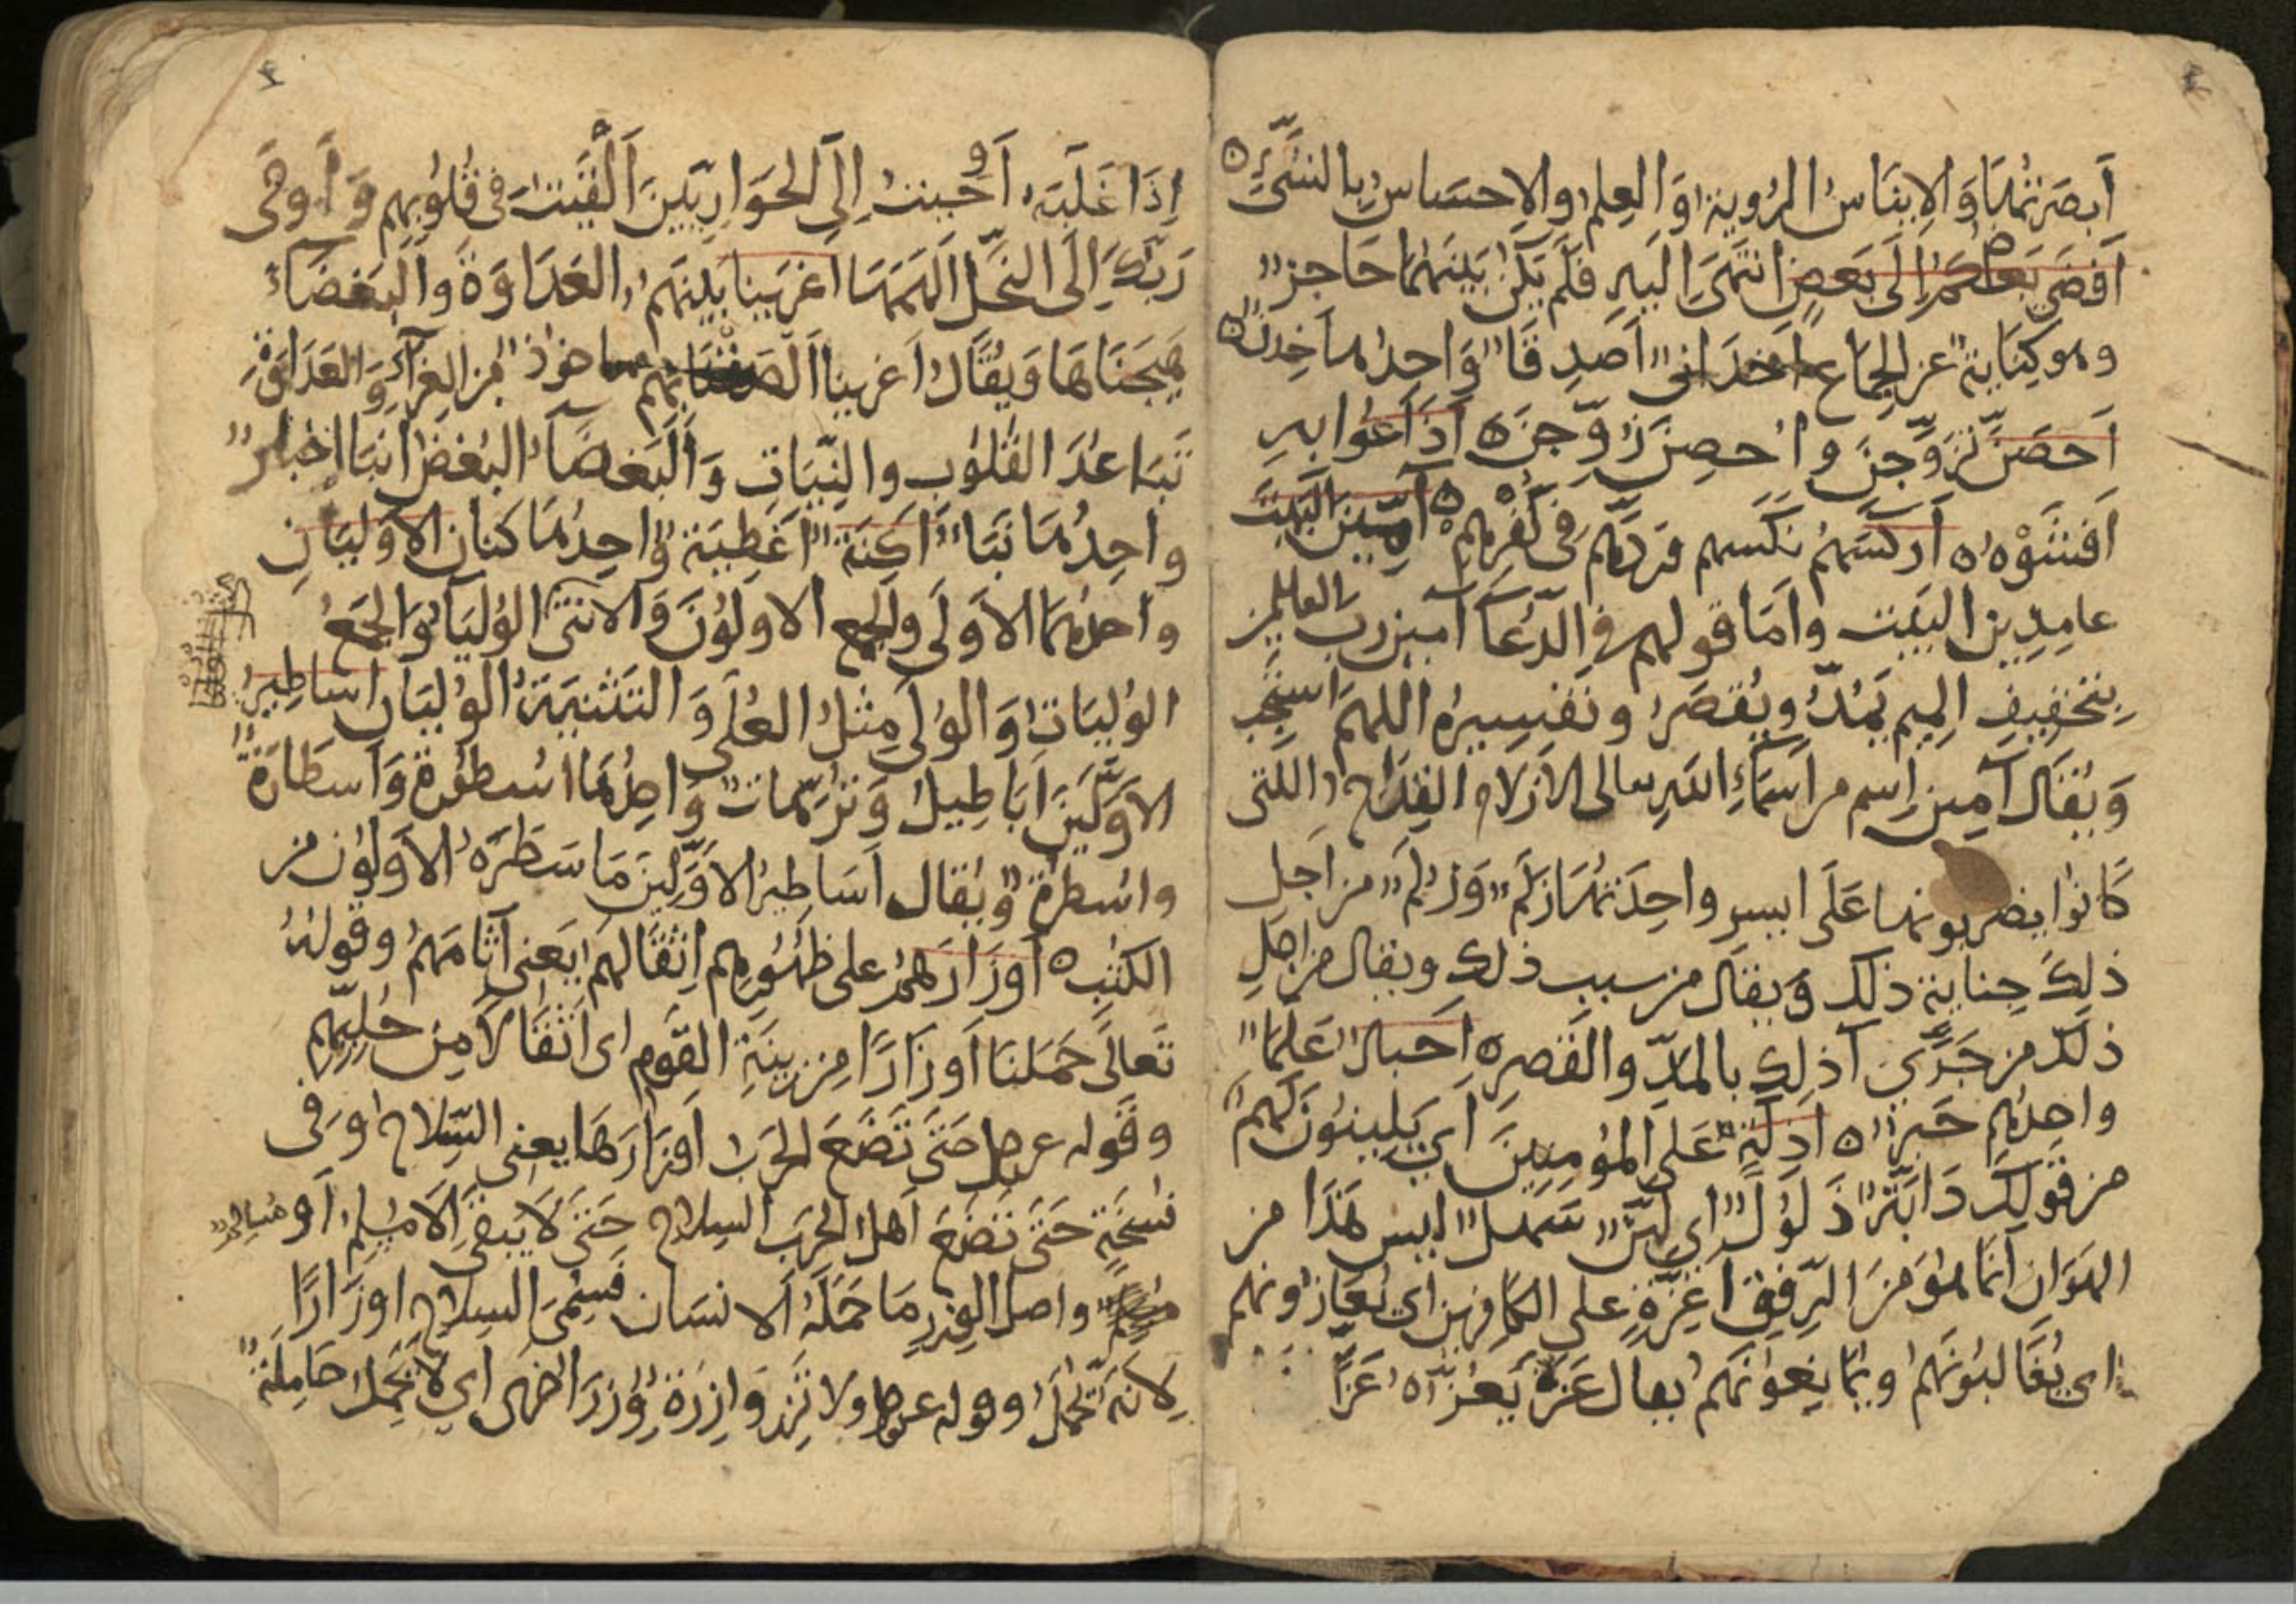 أَبصَرتُهَا وَالإِينَاسُ الرُوية وَالعِلم والاِحسَاس بِالشَّئ ه
اَفضَى بَعضكُم إِلَى بَعضٍ انتَهَى إِلَيهِ فَلَم يَكُن بَينَهُمَا حَاجز
وهو كِنَاية عن الجِمَاع اخدَان اَصدِقَا وَاحِدها خِدنٌ ه
اَحصَنَّ تَزَوَّجنَ واُحصِنَّ زُوِّجنَ ه اَذَاعُوا بِهِ
اَفشَوْهُ ه اَركَسَهُم نَكَّسهم وَردّهُم فى كُفرِهِم ه آمِّينَ البَيتَ
عامِدِين البَيت واَمَا قولهم فى الدّعَآ آمين رب العالمين
بتَخفِيفِ المِيم يُمَدُّ ويُقصَرُ وتَفسِيرُه اللهُمَّ استَجِب
وَيُقَال آمِين اِسم من اَسمَآءِ اللّهِ تعالى الازلام القِدَاح اللتى
كَانُوا يضربُونَ بها عَلَى الميسر واحِدَتُهَا زَلَم وَزُلَم من اَجلِ
ذلِكَ جِناية ذلك وَيقَال من سبب ذلك ويقال من اجلِ
ذلكَ من جَرَّى ذلِك بالمدّ والقَصرِ ه اَحبار عُلَمَا
واحِدُهم حَبر ه اَذِلَّةٍ عَلى المُؤمِنِينَ اَي يَلِينُونَ لَهُم
من قَولِكَ دَابَّة ذَلُول اي لَيِّن سَهل ليس هَذَا من
الهَوَان اِنَّمَا هُوَ مَنَ الرِّفقِ اَعِزَّةٍ على الكَافِرين اي يُعَازّونهم
اى يُغَالبُونَهُم ويُمَانِعُونَهُم يقال عَزَّهُ يَعُزُّه عَزًّا
إِذَا غَلَبَهُ اَوحَيتُ اِلَى الحَوَارِيِّينَ اَلْقَيتُ فى قُلُوبِهِم وَاَوحَى
رَبُّكَ إِلَى النَّحلِ اَلهَمَهَا اَغرَينَا بَينَهُم العَدَاوَةَ وَالبَغضَاءَ
هَيَّجنَاهَا وَيُقَال اَغرينا اَلصَقنَا بهم ماخوذ من الغِرَآءِ وَالعَدَاوَة
تَبَاعُدَ القُلُوب والنِّيَّاتِ وَالبَغضَآءُ البُغضُ اَنبَا اخبَار
واحِدُهَا نَبَأ اَكِنَّة اَغطِيَة وَاحِدُهَا كنان الاَوليَانِ
واَحدهما الاَولَى والجمع الاولَونَ وَالانثَى الوُليَا وَالجَمع
الوُليَات وَالوُلى مِثلُ العُلَى وَالتَثنِيَة الوُليَيَان اسَاطِيرُ
الاَوَّلِينَ اَبَاطِيلُ وَتُرَّهات وَاحِدُهَا اُسطُورَة وَاَسطَارَة
واُسطرة وَيُقال اَسَاطِيرُ الاَوَّلِينَ مَا سَطَرَهُ الاَوّلُونَ من
الكُتُبِ ه اَوزَارَهُم على ظُهُورِهِم اِثقَالهُم يَعنى آثامَهُم وقولهُ
تَعالى حَمَلنَا اَوزَارًا مِن زِينَةِ القَوم اى اَثقَالاً مِن حُلِيِّهِم
وقَوله عز وجل حَتَى تَضَعَ الحَرب اَوزَارَهَا يعنى السِّلاح وفى
نُسخَةٍ حَتَى تَضَعَ اَهلُ الحَرب السِلاح حَتَى لَا يَبقَى اِلا مُسلِم اَو مُسَالِم
واصل الوِزر مَا حَمَلَهُ الانسَان فَسُمِّىَ السِلاح اَوزَارًا
لاِنَّه تُحمَل وقوله عز وجل ولا تَزِر وَازِرَة وِزرَ اُخرَى اي لا تَحمِلُ حَامِلَة